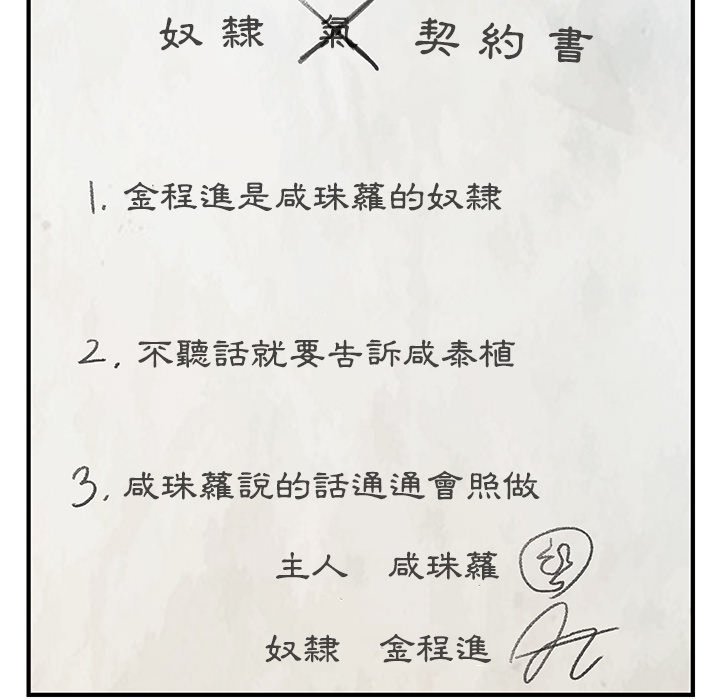 奴隸 氣 契約書
1. 金程進是咸珠蘿的奴隸
2. 不聽話就要告訴咸泰植
3. 咸珠蘿說的話通通會照做
主人 咸珠蘿
奴隸 金程進